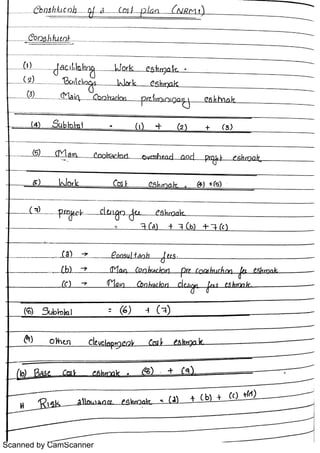 Constituents of a cost plan (NRM1)
Constituent
(1) facilitating Work estimate .
(2) Buildings Work estimate
(3) Main Contractors preliminary estimate
(4) Subtotal = (1) + (2) + (3)
(5) Main contractors overhead and profit estimate
6) Work Cost estimate . (4) + (5)
(7) project design fee estimate
= 7(a) + 7(b) + 7(c)
(a) → Consultants fees.
(b) → Main Contractors pre construction fee estimate
(c) → Main Contractors design fees estimate.
(8) Subtotal = (6) + (7)
(9) other development cost estimate
(b) Base Cost estimate . (8) + (9)
11 Risk allowance estimate = (a) + (b) + (c) +(d)
Scanned by CamScanner